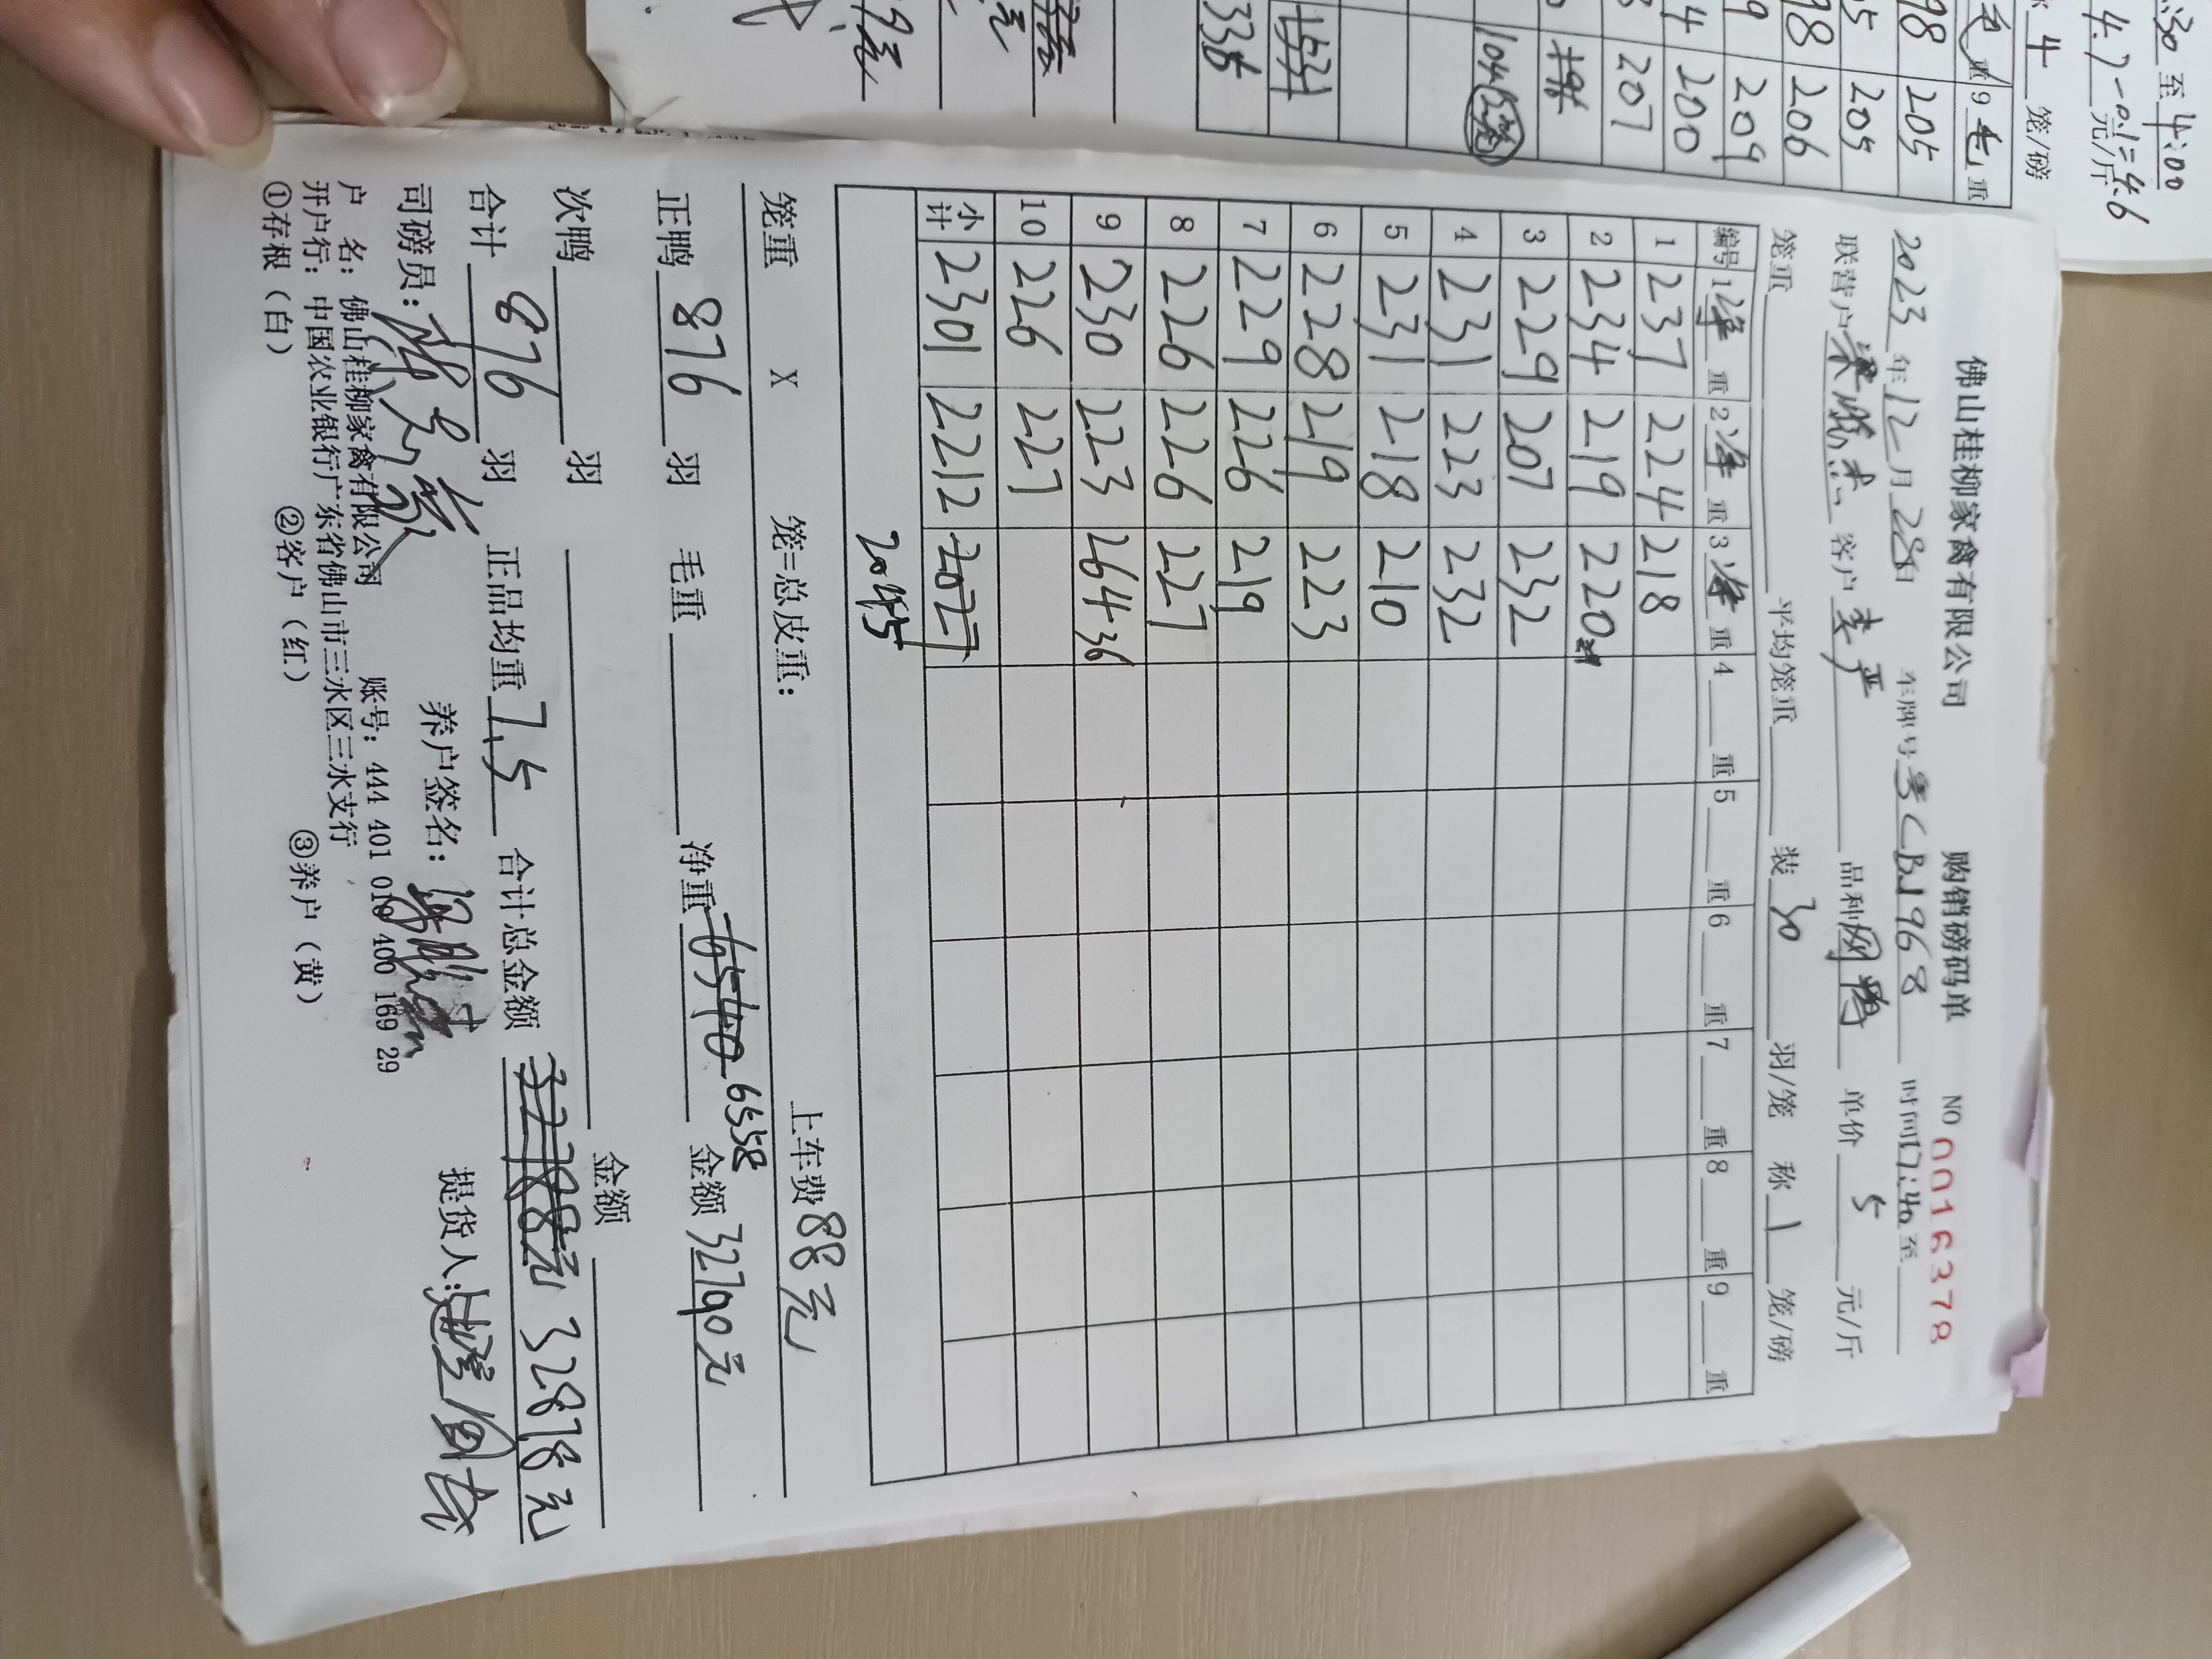 佛山桂柳家禽有限公司 购销磅码单 NO 0016378
2023年12月28日 车牌号粤CBJ968 时间17:40至
联营户 客户李严 品种 单价5元/斤
笼重 平均笼重 装30羽/笼 称1笼/磅
编号 1净重 2净重 3净重 4重 5重 6重 7重 8重 9重
1 237 224 218
2 234 219 220
3 229 207 232
4 231 223 232
5 231 218 210
6 228 219 223
7 229 226 219
8 226 226 227
9 230 223 264 36
10 226 227
小计 2301 2212 2027
2045
笼重 X 笼=总皮重: 上车费88元
正鸭876羽 毛重 净重6540 6558 金额32790元
次鸭 羽 金额
合计876羽 正品均重7.5 合计总金额32788元 32878元
司磅员: 养户签名: 提货人:
户 名: 佛山桂柳家禽有限公司 账号: 444 401 010 400 169 29
开户行: 中国农业银行广东省佛山市三水区三水支行
①存根(白) ②客户(红) ③养户(黄)
:30至4:00
4.7-0.1=4.6元/斤
4笼/磅
重 9毛重
98 205
5 205
98 206
9 209
4 200
207
196
104
1531